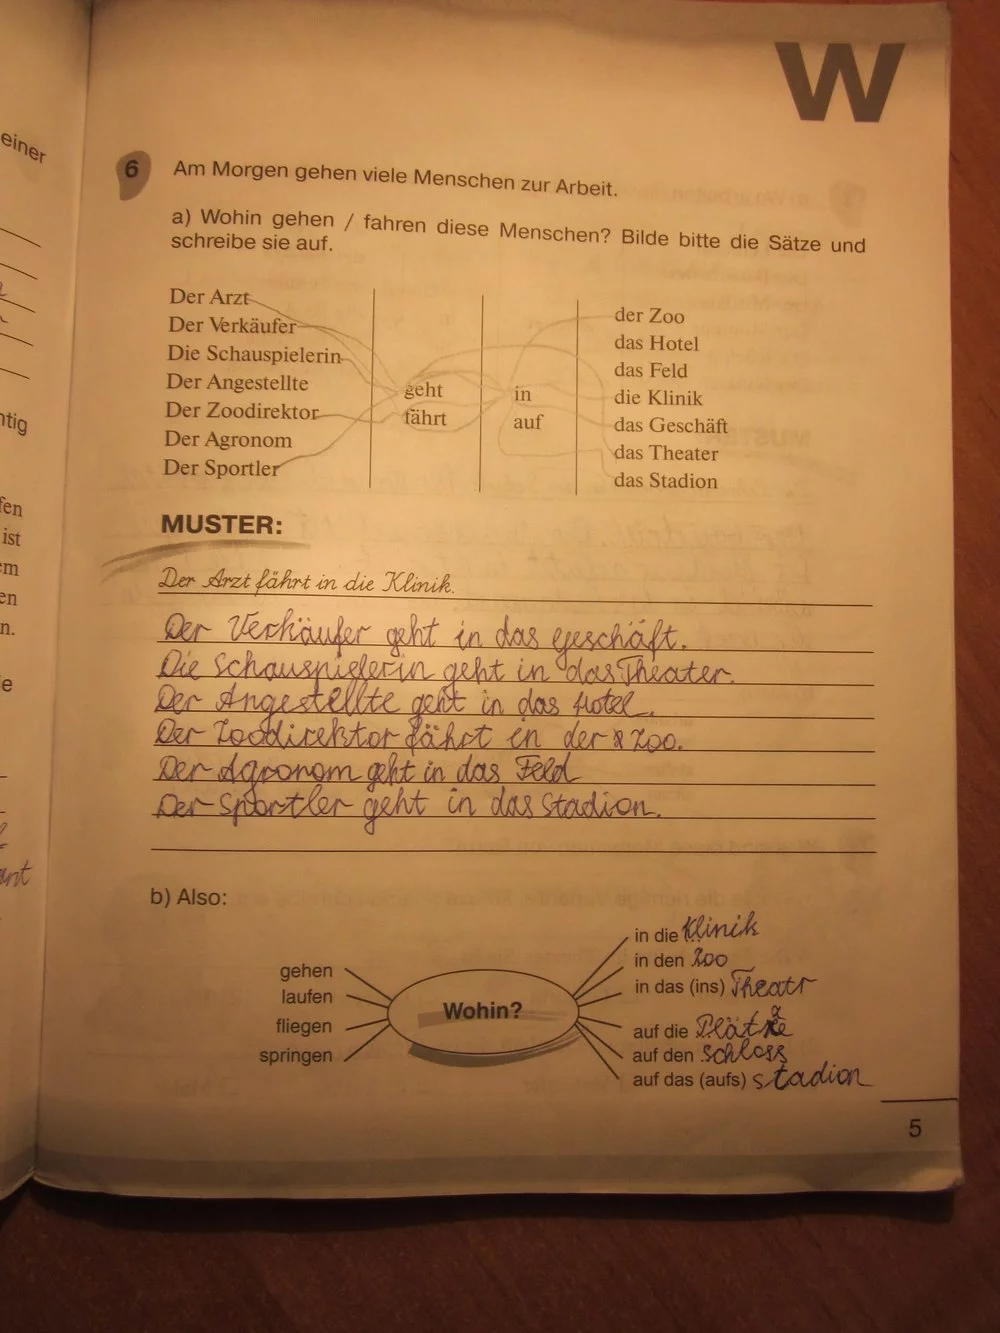 einer
W
6 Am Morgen gehen viele Menschen zur Arbeit.
a) Wohin gehen / fahren diese Menschen? Bilde bitte die Sätze und
schreibe sie auf.
Der Arzt
Der Verkäufer
Die Schauspielerin
Der Angestellte
Der Zoodirektor
Der Agronom
Der Sportler
geht
fährt
in
auf
der Zoo
das Hotel
das Feld
die Klinik
das Geschäft
das Theater
das Stadion
MUSTER:
Der Arzt fährt in die Klinik.
Der Verkäufer geht in das geschäft.
Die Schauspielerin geht in das Theater.
Der Angestellte geht in das Hotel.
Der Zoodirektor fährt in der Zoo.
Der Agronom geht in das Feld
Der Sportler geht in das Stadion.
b) Also:
gehen
laufen
fliegen
springen
Wohin?
in die Klinik
in den Zoo
in das (ins) Theatr
auf die
auf den schloss
auf das (aufs) stadion
5
ntig
fen
ist
em
en
n.
e